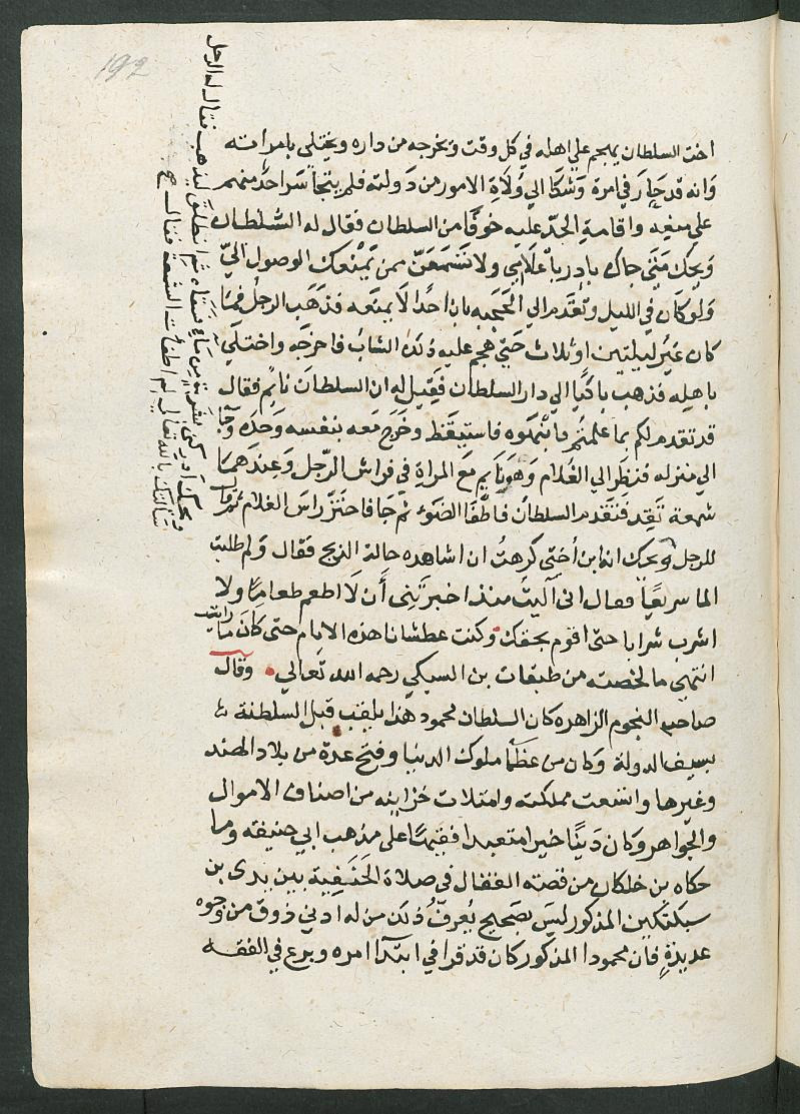 192
اخت السلطان يهجم علي اهله في كل وقت ويخرجه من داره ويختلي بامراته
وانه قد حار في امره وشكا الي ولاة الامور من دولته فلم يتجاسر احد منهم
علي منعه واقامة الحد عليه خوفا من السلطان فقال له السلطان
ويحك متي جاك بادر باعلامي ولا تسمعن ممن يمنعك الوصول اليّ
ولو كان في الليل وتقدم الي الحجبه بان احدا لا يمنعه فذهب الرجل فما
كان غير ليلتين او ثلاث حتي هجم عليه ذلك الشاب فاخرجه واختلي
باهله فذهب باكيا الي دار السلطان فقيل له ان السلطان نايم فقال
قد تقدم لكم بما علمتم فانبهوه فاستيقظ وخرج معه بنفسه وحده وجا
الي منزله فنظر الي الغلام وهو نايم مع المراة في فراش الرجل وعندهما
شمعة تقد فتقدم السلطان فاطفا الضوء ثم جا فاحتز راس الغلام
للرجل ويحك انه ابن اختي كرهت ان اشاهده حالة الذبح فقال ولم طلبت
الما سريعا فقال اني آليت منذ اخبرتني أن لا اطعم طعاما ولا
اشرب شرابا حتى اقوم بحقك وكنت عطشانا هذه الايام حتى كان ما رايت
انتهي ما لخصته من طبقات بن السبكي رحمه الله تعالي وقال
صاحب النجوم الزاهره كان السلطان محمود هذا يلقب قبل السلطنة
بسيف الدولة وكان من عظما ملوك الدنيا وفتح عدة من بلاد الهند
وغيرها واتسعت مملكته وامتلات خزاينه من اصناف الاموال
والجواهر وكان دينا خيرا متعبدا فقيها على مذهب ابي حنيفته وما
حكاه بن خلكان من قصة القفال في صلاة الحنفية بين يدي بن
سبكتكين المذكور ليس بصحيح يعرف ذلك من له ادني ذوق من وجوه
عديدة فان محمودا المذكور كان قد قرا في ابتدا امره وبرع في الفقه
ويحك ادركني بشربة من ماء فسقاه ثم انطلق ليذهب فقال له الرجل
سالتك بالله تعالي لم اطفات الشمعة فقال